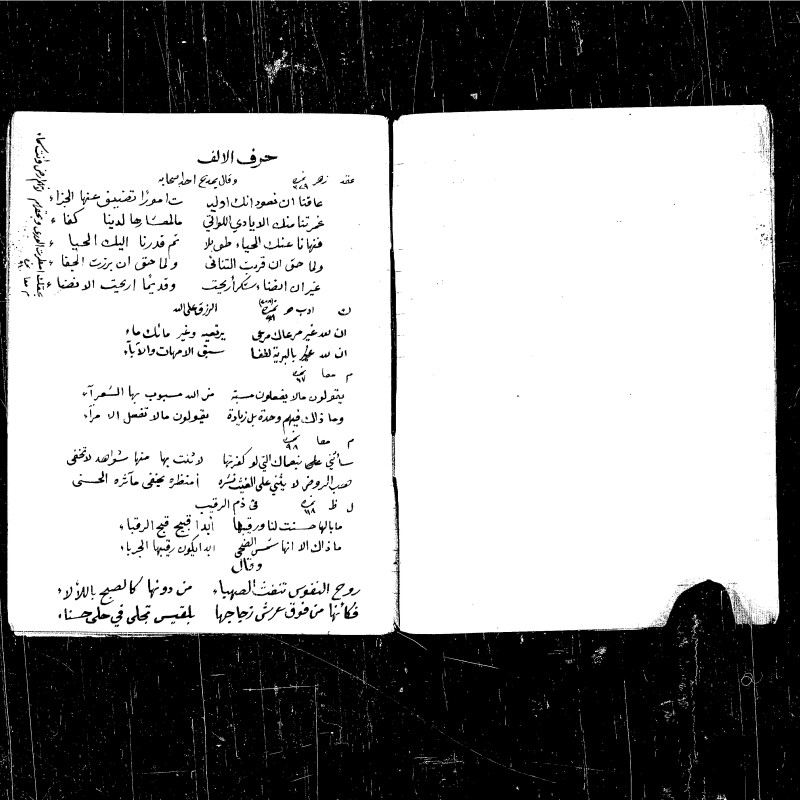 حرف الالف
عقد زهر نمرة ٣٧٩ وقال يمدح احد اصحابه
عاقنا ان نعود انك اوليت امورًا تضيق عنها الجزاء
غمرتنا منك الايادي اللواتي ما لمعشارها لدينا كفاء
فنهانا عنك الحياء طويلا ثم قدرنا اليك الحياء
ولما حق ان قربت التنائي ولما حق ان بررت الجفاء
غير ان انضاء شكر أريحت وقديمًا اريحت الانضاء
ادب نمرة الرزق على الله
ان لله غير مرعاك مرعى يرتعيه وغير مائك ماء
ان لله بالبرية لطفا سبق الامهات والآباء
م معا نمرة ٦٧
يقولون مالا يفعلون مسبة من الله مسبوب بها الشعرآء
وما ذاك فيهم وحده بل زيادة يقولون مالا تفعل الامرآء
م معا نمرة ٩٨
سأثني على نعماك التي لو كفرتها لاثنت بها منها شواهد لا تخفى
هب الروض لا يثني على الغيث نشره أمنظره يخفي مآثره الحسنى
ل ظ نمرة ١١٨ في ذم الرقيب
ما بالها حسنت لنا ورقيبها أبدا قبيح قبح الرقباء
ما ذاك الا انها شمس الضحى ابدا يكون رقيبها الحرباء
وقال
روح النفوس تنفث الصهباء من دونها كالصبح باللألاء
فكأنها من فوق عرش زجاجها بلقيس تجلى في حلى حسناء